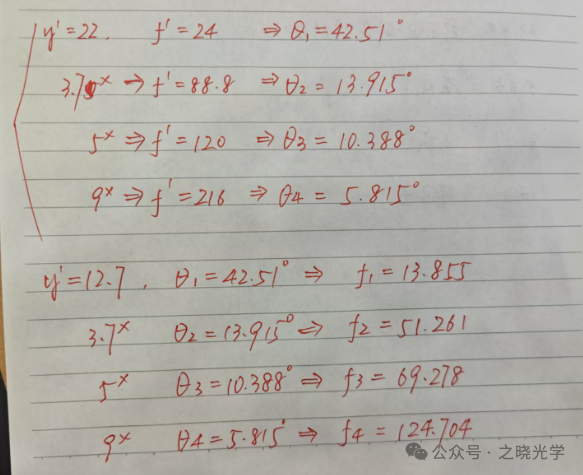 y'=22, f'=24 ⇒ θ₁=42.51°
3.7ˣ → f'=88.8 ⇒ θ₂=13.915°
5ˣ ⇒ f'=120 ⇒ θ₃=10.388°
9ˣ ⇒ f'=216 ⇒ θ₄=5.815°
y'=12.7, θ₁=42.51° ⇒ f₁=13.855
3.7ˣ θ₂=13.915° ⇒ f₂=51.261
5ˣ θ₃=10.388° ⇒ f₃=69.278
9ˣ θ₄=5.815° ⇒ f₄=124.704
公众号·之晓光学